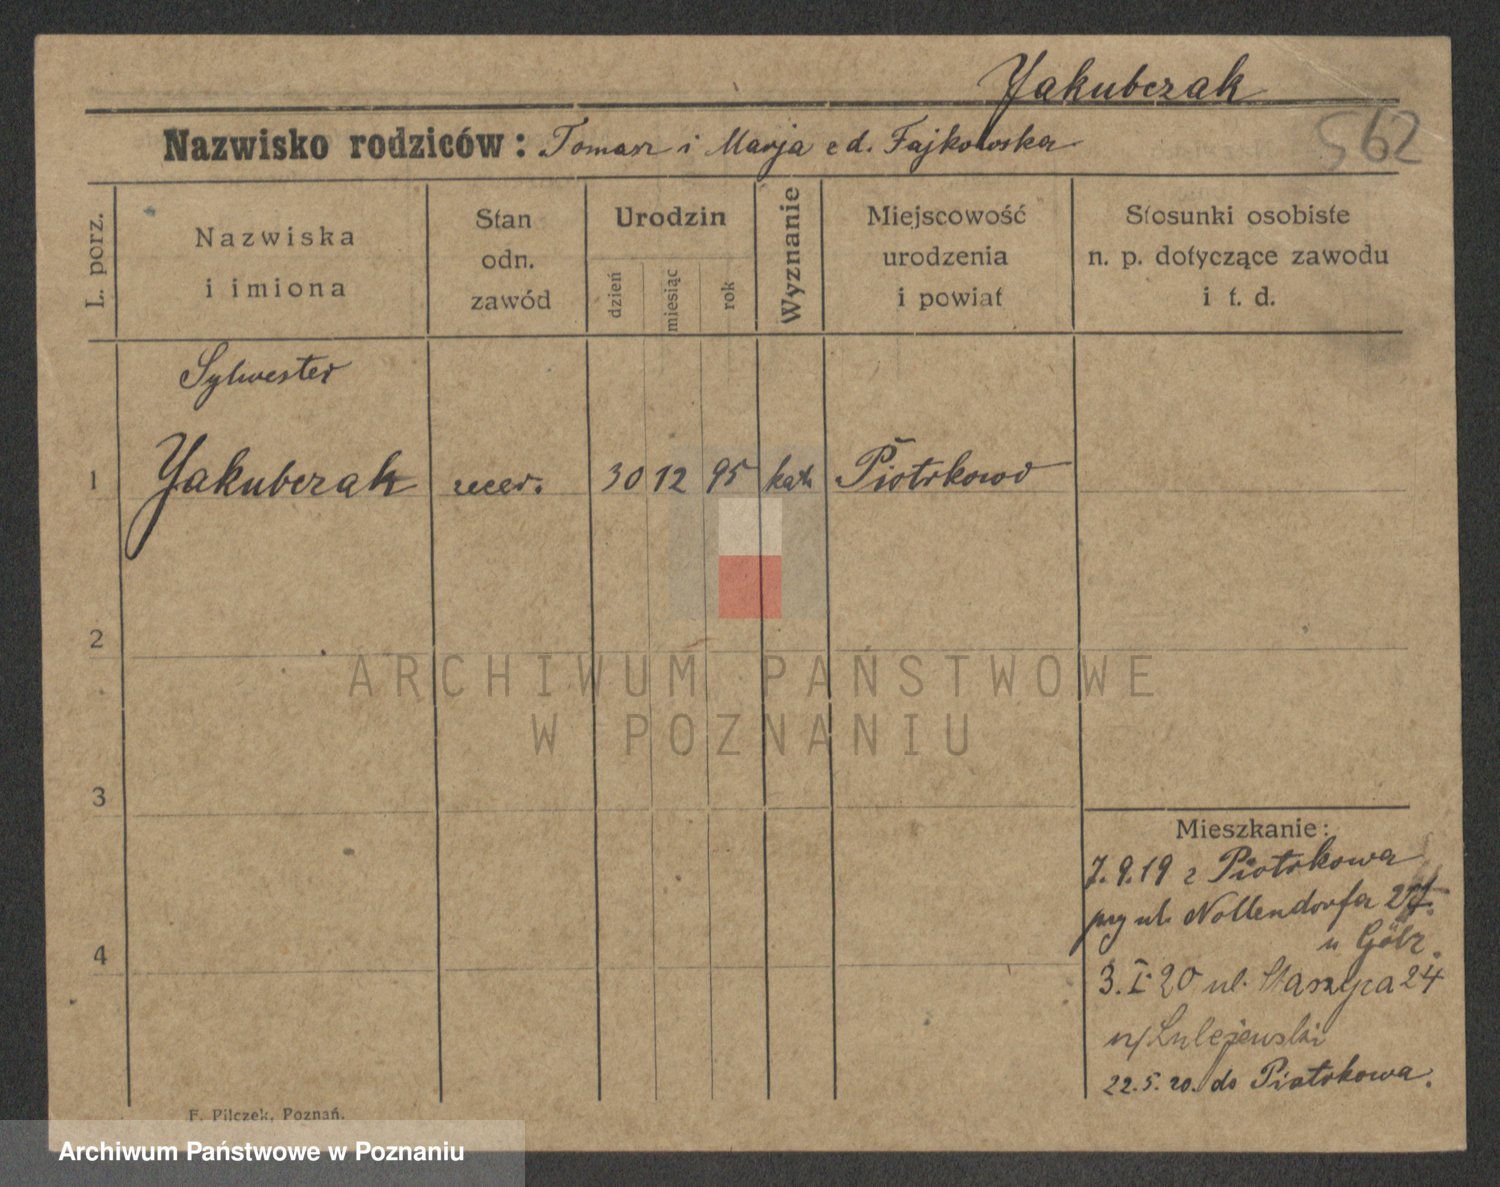 Yakubczak
Nazwisko rodziców: Tomasz i Marja z d. Fajkowska
562
L. porz.
Nazwiska
i imiona
Stan
odn.
zawód
Urodzin
dzień
miesiąc
rok
Wyznanie
Miejscowość
urodzenia
i powiat
Stosunki osobiste
n. p. dotyczące zawodu
i t. d.
Sylwester
1 Yakubczak 30 12 95 kat. Piotrkowo
2
ARCHIWUM PAŃSTWOWE
W POZNANIU
3
Mieszkanie:
7.9.19 z Piotrkowa
przy ul. Nollendorfa 27.
u Götz.
4
3.I.20 ul. Staszyca 24
u/Lulejewski
22.5.20. do Piotrkowa.
F. Pilczek, Poznań.
Archiwum Państwowe w Poznaniu